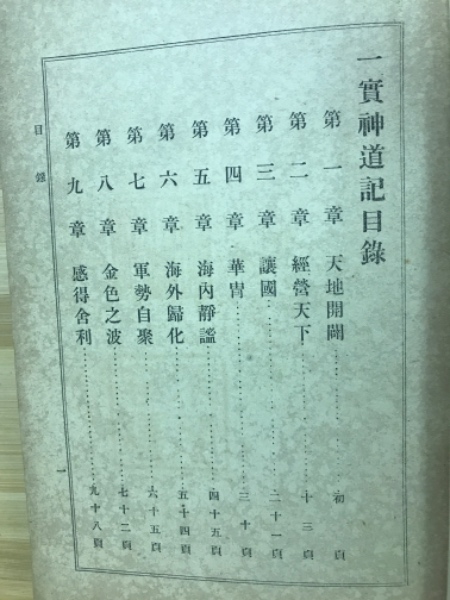 一實神道記目錄
第一章 天地開闢………初頁
第二章 經營天下………十三頁
第三章 讓國………二十一頁
第四章 華冑………三十頁
第五章 海內靜謐………四十五頁
第六章 海外歸化………五十四頁
第七章 軍勢自聚………六十五頁
第八章 金色之波………七十二頁
第九章 感得舍利………九十八頁
目錄
一